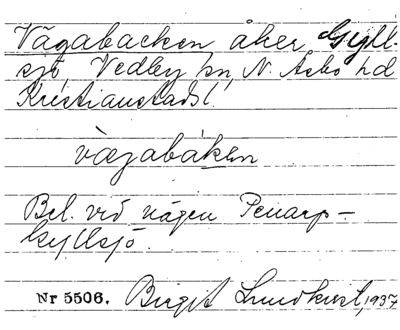 Vägabacken, åker, Gyll-
sjö, Vedby sn, N. Åsbo hd
Kristianstads l.
vægabákən
Bel. vid vägen Penarp –
Gyllsjö.
Nr 5506. Birgit Lundkvist, 1937